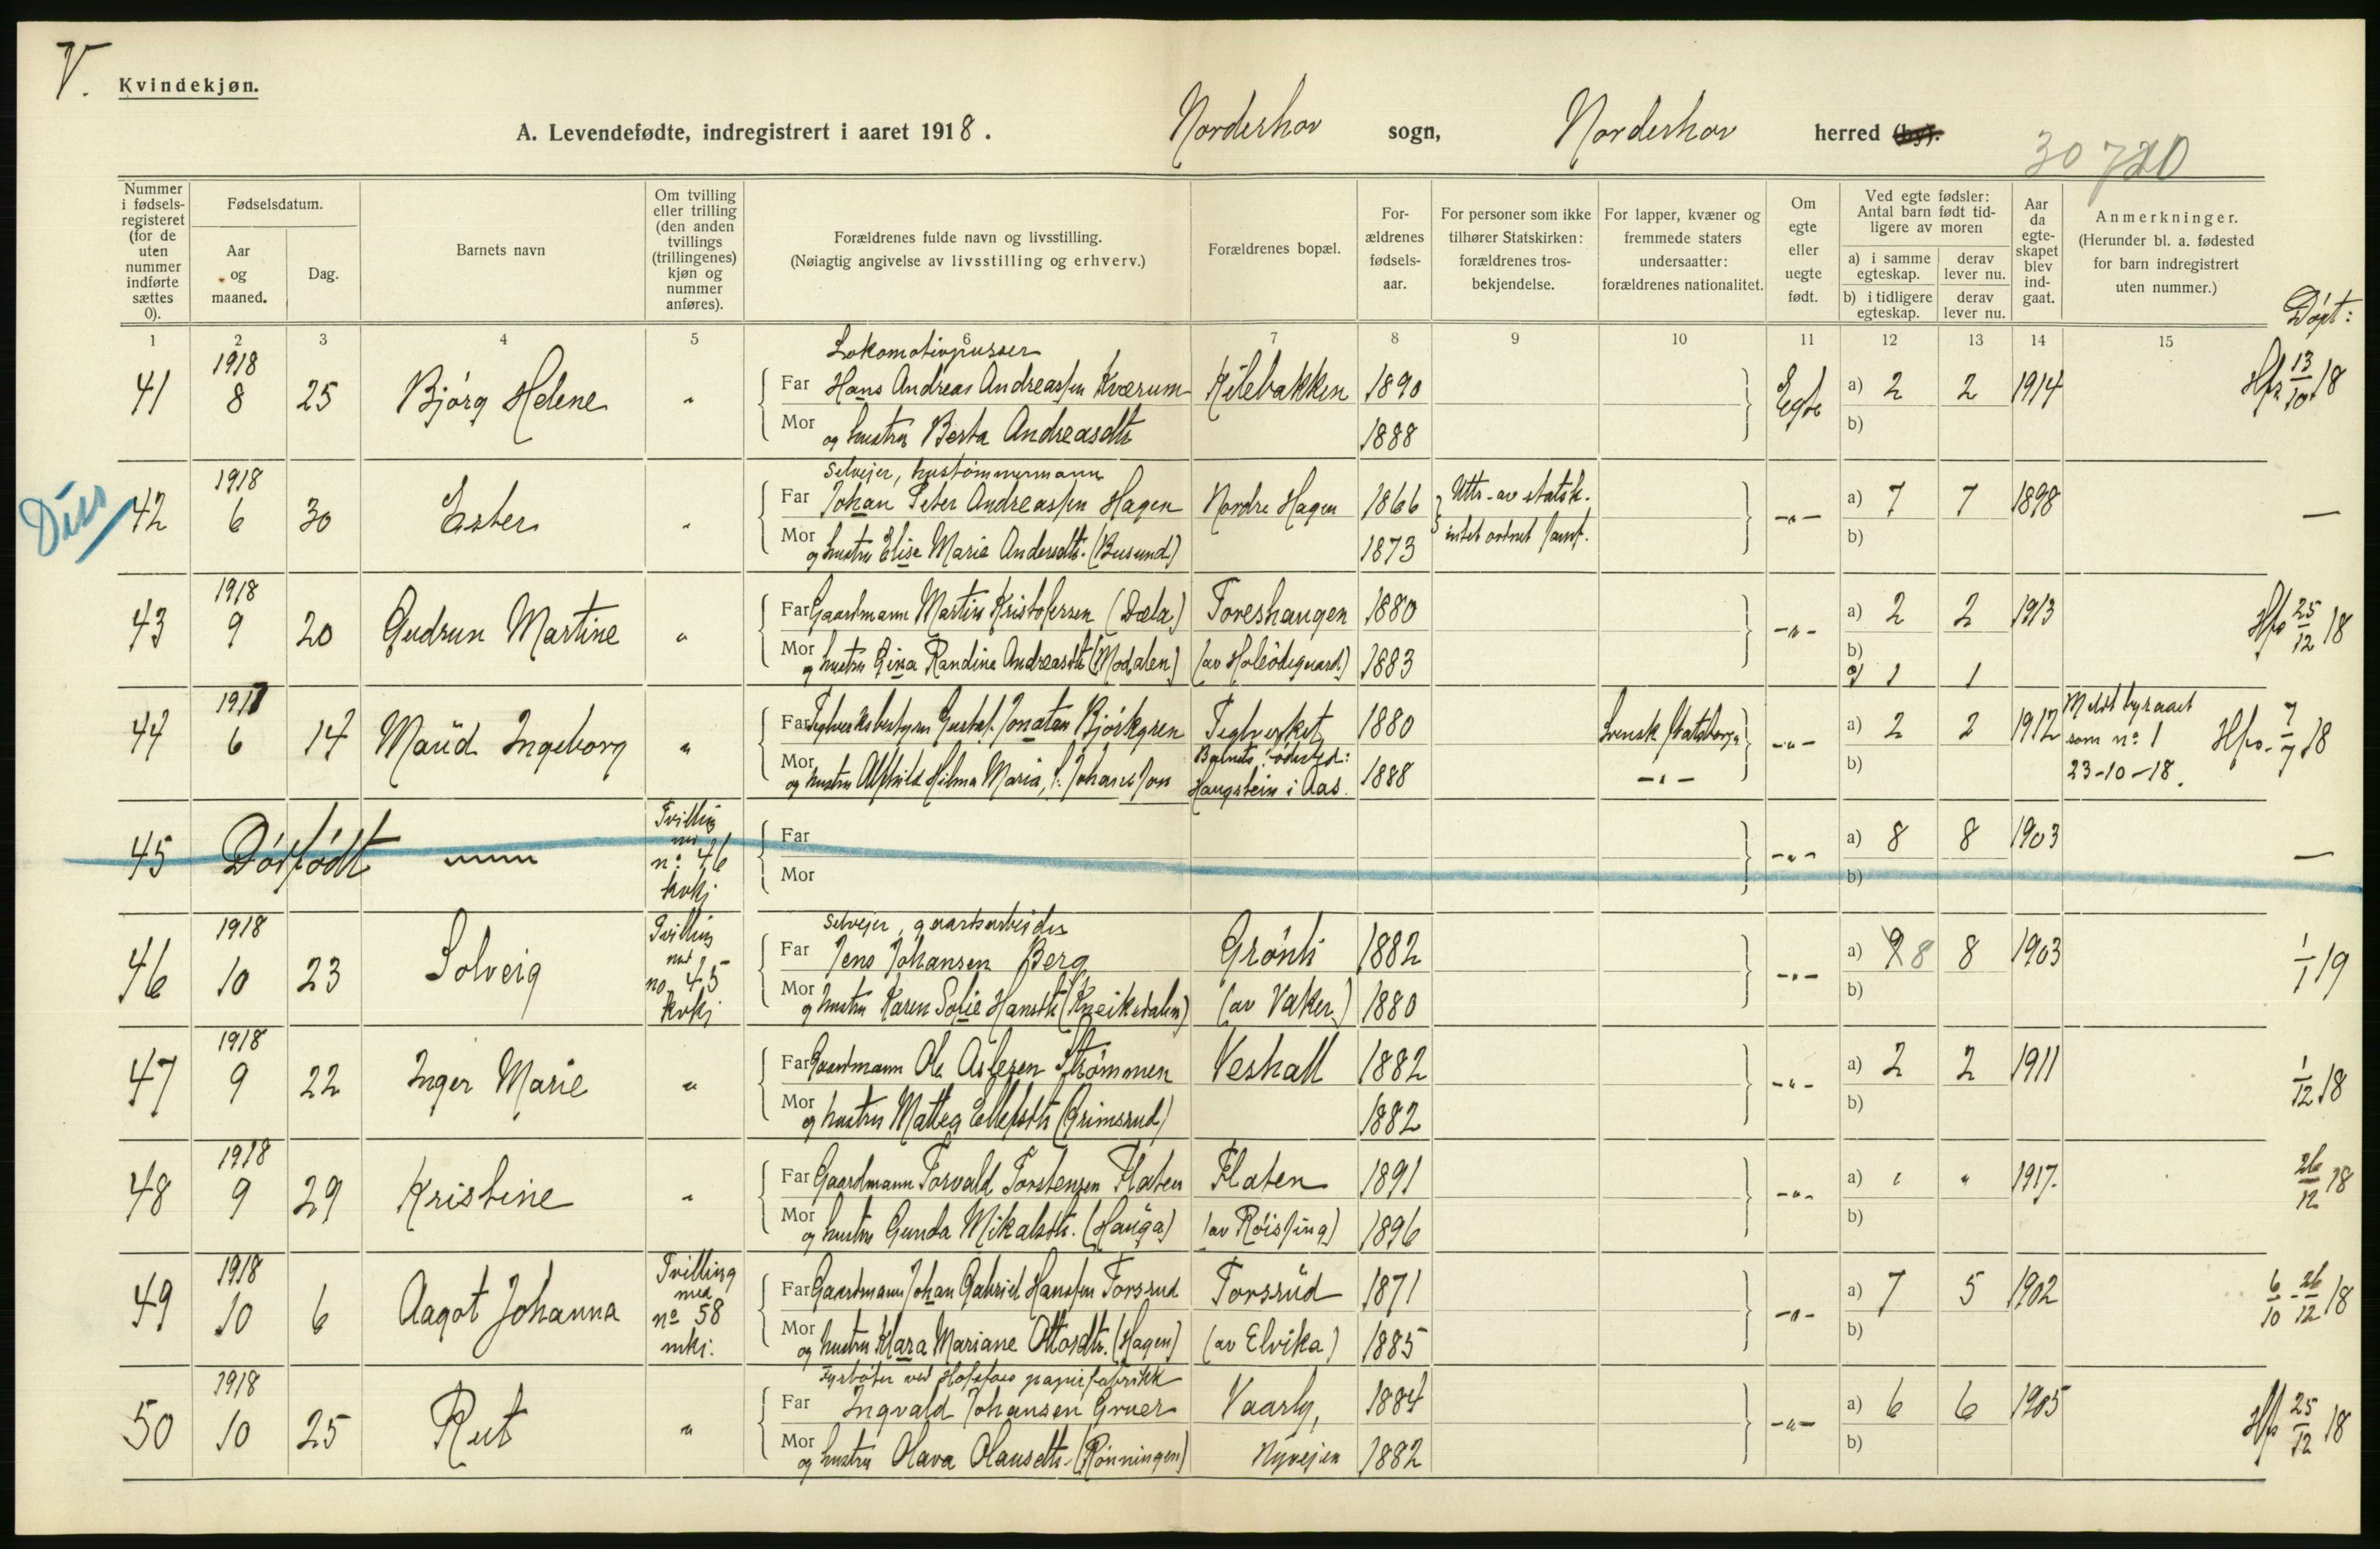 V.
Kvindekjøn.
A. Levendefødte, indregistrert i aaret 1918. Norderhov sogn, Norderhov herred (by).
30 720
Nummer i fødsels-registeret (for de uten nummer indførte sættes 0).
Fødselsdatum.
Aar og maaned.
Dag.
Barnets navn
Om tvilling eller trilling (den anden tvillings (trillingenes) kjøn og nummer anføres).
Forældrenes fulde navn og livsstilling.
(Nøiagtig angivelse av livsstilling og erhverv.)
Forældrenes bopæl.
For-ældrenes fødsels-aar.
For personer som ikke tilhører Statskirken: forældrenes tros-bekjendelse.
For lapper, kvæner og fremmede staters undersaatter: forældrenes nationalitet.
Om egte eller uegte født.
Ved egte fødsler: Antal barn født tid-ligere av moren
a) i samme egteskap.
derav lever nu.
b) i tidligere egteskap.
derav lever nu.
Aar da egte-skapet blev ind-gaat.
Anmerkninger.
(Herunder bl. a. fødested for barn indregistrert uten nummer.)
Döpt:
1 2 3 4 5 6 7 8 9 10 11 12 13 14 15
1918 Lokomotivpusser
41 8 25 Bjørg Helene " Far Hans Andreas Andreassen Kværum Kilebakken 1890 Egte a) 2 2 1914 13/10 18
Mor og hustru Berta Andreasdtr 1888 b)
Diss
1918 Selveier, hustømmermann
42 6 30 Ester " Far Johan Peter Andreassen Hagen Nordre Hagen 1866 Uttr. av statsk. -"- a) 7 7 1898 —
Mor og hustru Elise Marie Andersdtr. (Busund) 1873 intet ordnet samf. b)
1918
43 9 20 Gudrun Martine " Far Gaardmann Martin Kristofersen (Dæla) Toreshaugen 1880 -"- a) 2 2 1913 25/12 18
Mor og hustru Gina Randine Andreasdtr (Modalen) (av Holeödegaard) 1883 b) 1 1
1918
44 6 14 Maud Ingeborg " Far Teglverksbestyrer Gustaf Jonatan Björkgren Teglverket 1880 Svensk Statsborger -"- a) 2 2 1912 Meldt byraaet som no 1 23-10-18. 7/7 18
Mor og hustru Alfhild Hilma Maria, f. Johansson Barnets fødested: Haugstein i Aas. 1888 -"- b)
45 Dødfødt Tvilling med no 46 kvkj Far -"- a) 8 8 1903 —
Mor b)
1918 Selveier, gaardsarbeider
46 10 23 Solveig Tvilling med no 45 kvkj Far Jens Johansen Berg Grønli 1882 -"- a) 9 8 8 1903 1/1 19
Mor og hustru Karen Sofie Hansdtr (Kneiksdalen) (av Vaker) 1880 b)
1918
47 9 22 Inger Marie " Far Gaardmann Ole Aslesen Strømmen Veshall 1882 -"- a) 2 2 1911 1/12 18
Mor og hustru Mattea Ellefsdtr (Grimsrud) 1882 b)
1918
48 9 29 Kristine " Far Gaardmann Torvald Torstensen Flaten Flaten 1891 -"- a) " " 1917. 26/12 18
Mor og hustru Gunda Mikalsdtr. (Hauga) (av Røissing) 1896 b)
1918
49 10 6 Aagot Johanna Tvilling med no 58 mkj. Far Gaardmann Johan Gabriel Hanssen Torsrud Torsrud 1871 -"- a) 7 5 1902 6/10 - 26/12 18
Mor og hustru Klara Mariane Ottosdtr. (Hagen) (av Elvika) 1885 b)
1918 Fyrbøter ved Hofsfos papirfabrikk
50 10 25 Rut " Far Ingvald Johansen Gruer Vaarly, 1884 -"- a) 6 6 1905 25/12 18
Mor og hustru Olava Olausdtr. (Rønningen) Nyveien 1882 b)